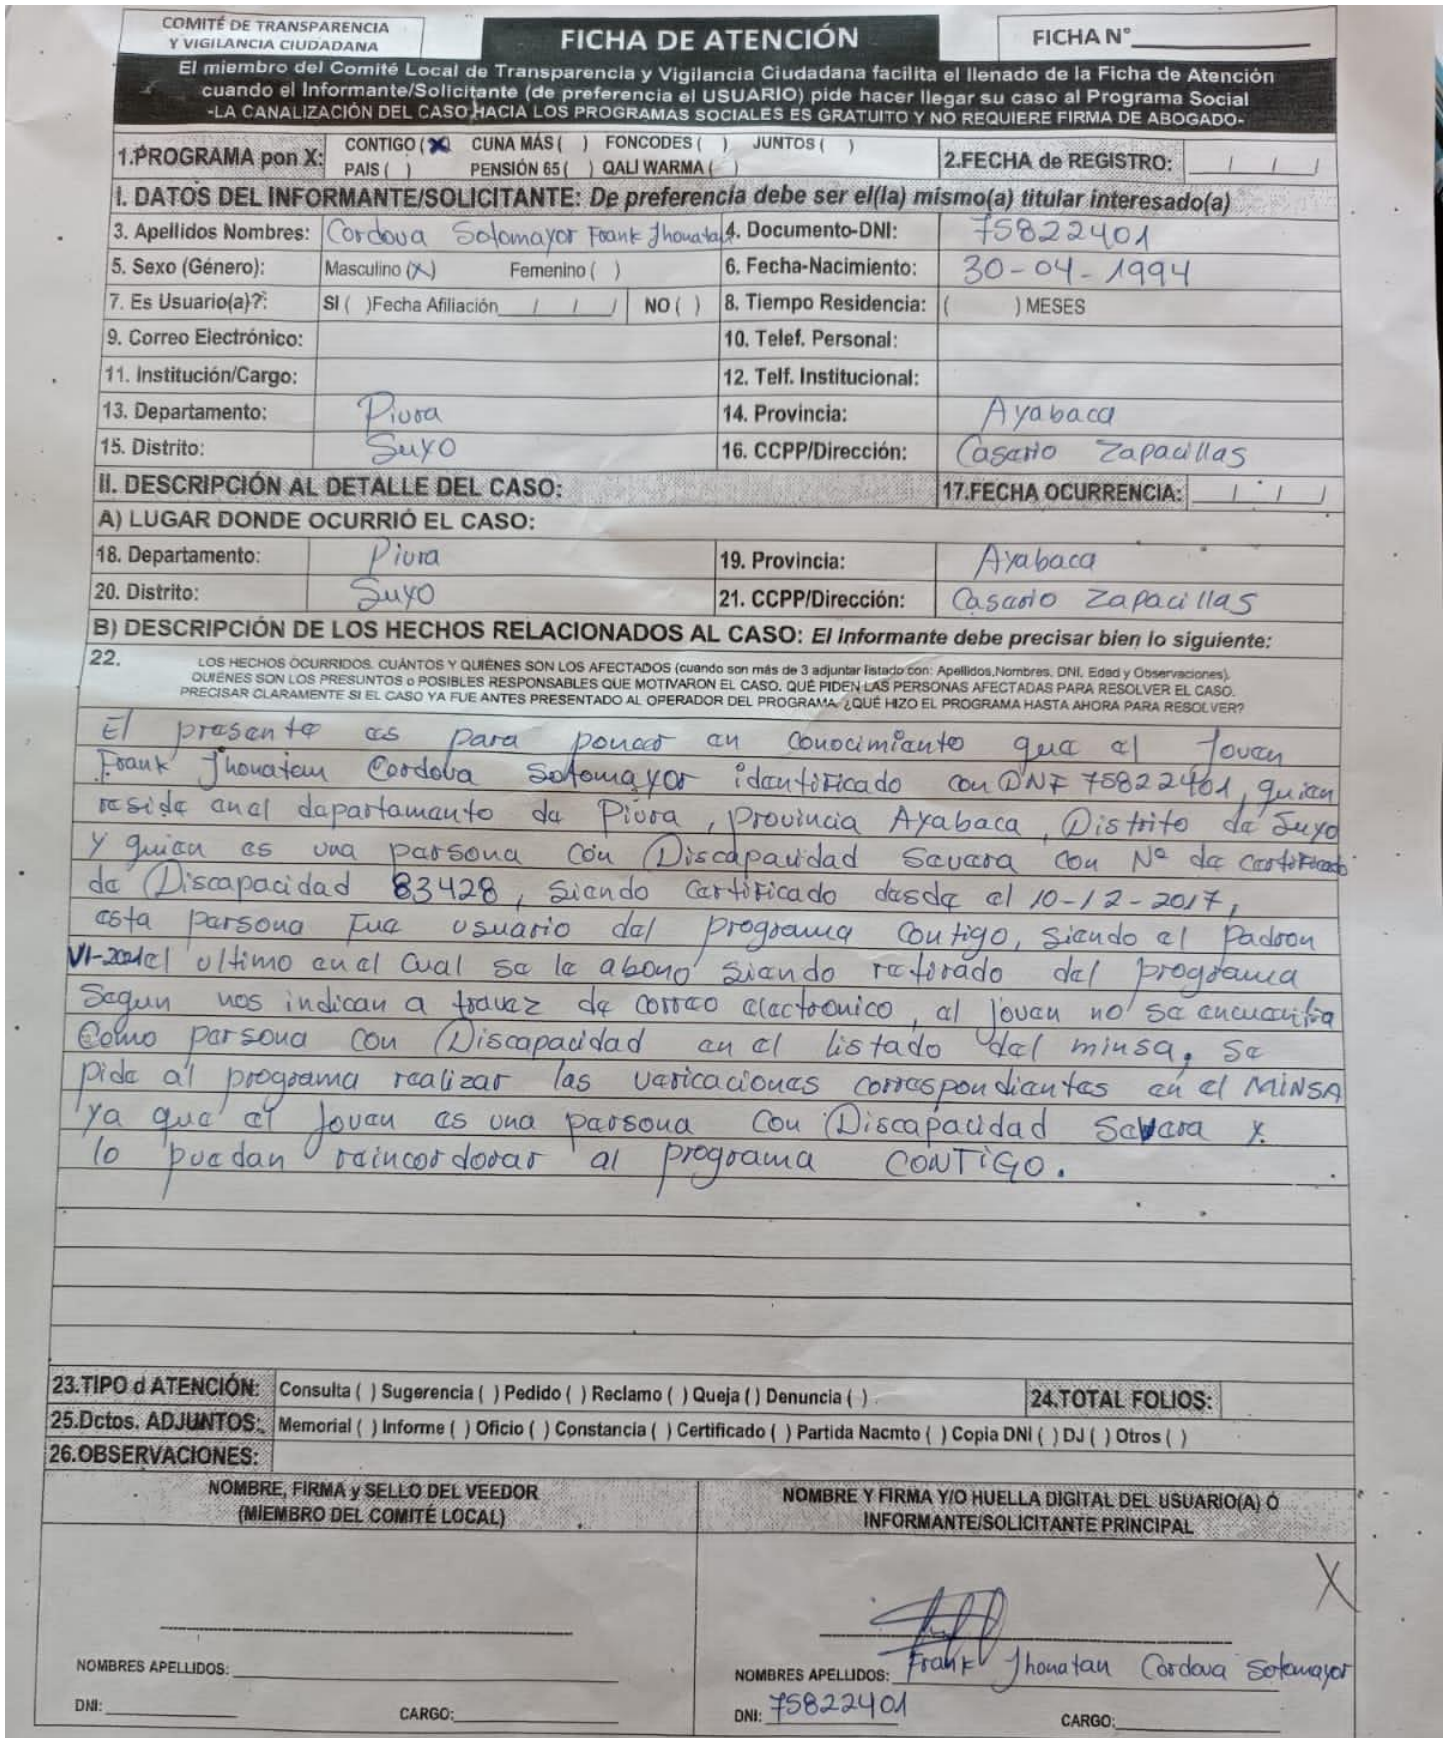 COMITÉ DE TRANSPARENCIA
Y VIGILANCIA CIUDADANA
FICHA DE ATENCIÓN
FICHA N°
El miembro del Comité Local de Transparencia y Vigilancia Ciudadana facilita el llenado de la Ficha de Atención
cuando el Informante/Solicitante (de preferencia el USUARIO) pide hacer llegar su caso al Programa Social
-LA CANALIZACIÓN DEL CASO HACIA LOS PROGRAMAS SOCIALES ES GRATUITO Y NO REQUIERE FIRMA DE ABOGADO-
1.PROGRAMA pon X: CONTIGO (X) CUNA MÁS ( ) FONCODES ( ) JUNTOS ( )
PAIS ( ) PENSIÓN 65 ( ) QALI WARMA ( )
2.FECHA de REGISTRO: / / /
I. DATOS DEL INFORMANTE/SOLICITANTE: De preferencia debe ser el(la) mismo(a) titular interesado(a)
3. Apellidos Nombres: Cordova Sotomayor Frank Jhonatan 4. Documento-DNI: 75822401
5. Sexo (Género): Masculino (X) Femenino ( ) 6. Fecha-Nacimiento: 30-04-1994
7. Es Usuario(a)?: SI ( )Fecha Afiliación / / / NO ( ) 8. Tiempo Residencia: ( ) MESES
9. Correo Electrónico: 10. Telef. Personal:
11. Institución/Cargo: 12. Telf. Institucional:
13. Departamento: Piura 14. Provincia: Ayabaca
15. Distrito: Suyo 16. CCPP/Dirección: Caserio Zapacillas
II. DESCRIPCIÓN AL DETALLE DEL CASO: 17.FECHA OCURRENCIA: / / /
A) LUGAR DONDE OCURRIÓ EL CASO:
18. Departamento: Piura 19. Provincia: Ayabaca
20. Distrito: Suyo 21. CCPP/Dirección: Caserio Zapacillas
B) DESCRIPCIÓN DE LOS HECHOS RELACIONADOS AL CASO: El Informante debe precisar bien lo siguiente:
22. LOS HECHOS OCURRIDOS. CUÁNTOS Y QUIÉNES SON LOS AFECTADOS (cuando son más de 3 adjuntar listado con: Apellidos,Nombres, DNI, Edad y Observaciones).
QUIENES SON LOS PRESUNTOS o POSIBLES RESPONSABLES QUE MOTIVARON EL CASO. QUÉ PIDEN LAS PERSONAS AFECTADAS PARA RESOLVER EL CASO.
PRECISAR CLARAMENTE SI EL CASO YA FUE ANTES PRESENTADO AL OPERADOR DEL PROGRAMA. ¿QUÉ HIZO EL PROGRAMA HASTA AHORA PARA RESOLVER?
El presente es para poner en conocimiento que el Joven
Frank Jhonatan Cordova Sotomayor identificado con DNI 75822401, quien
reside en el departamento de Piura, Provincia Ayabaca, Distrito de Suyo
y quien es una persona con Discapacidad Severa con N° de Certificado
de Discapacidad 83428, siendo Certificado desde el 10-12-2017,
esta persona Fue usuario del programa Contigo, siendo el Padron
VI-2021 el ultimo en el cual se le abono siendo retirado del programa
Segun nos indican a travez de correo electronico, el joven no se encuentra
Como persona con Discapacidad en el listado del minsa, se
pide al programa realizar las vericaciones correspondientes en el MINSA
ya que el Joven es una persona con Discapacidad Severa y
lo puedan reincordorar al programa CONTIGO.
23.TIPO d ATENCIÓN: Consulta ( ) Sugerencia ( ) Pedido ( ) Reclamo ( ) Queja ( ) Denuncia ( ) 24.TOTAL FOLIOS:
25.Dctos. ADJUNTOS: Memorial ( ) Informe ( ) Oficio ( ) Constancia ( ) Certificado ( ) Partida Nacmto ( ) Copia DNI ( ) DJ ( ) Otros ( )
26.OBSERVACIONES:
NOMBRE, FIRMA y SELLO DEL VEEDOR
(MIEMBRO DEL COMITÉ LOCAL)
NOMBRE Y FIRMA Y/O HUELLA DIGITAL DEL USUARIO(A) Ó
INFORMANTE/SOLICITANTE PRINCIPAL
X
NOMBRES APELLIDOS:
DNI: CARGO:
NOMBRES APELLIDOS: Frank Jhonatan Cordova Sotomayor
DNI: 75822401 CARGO: